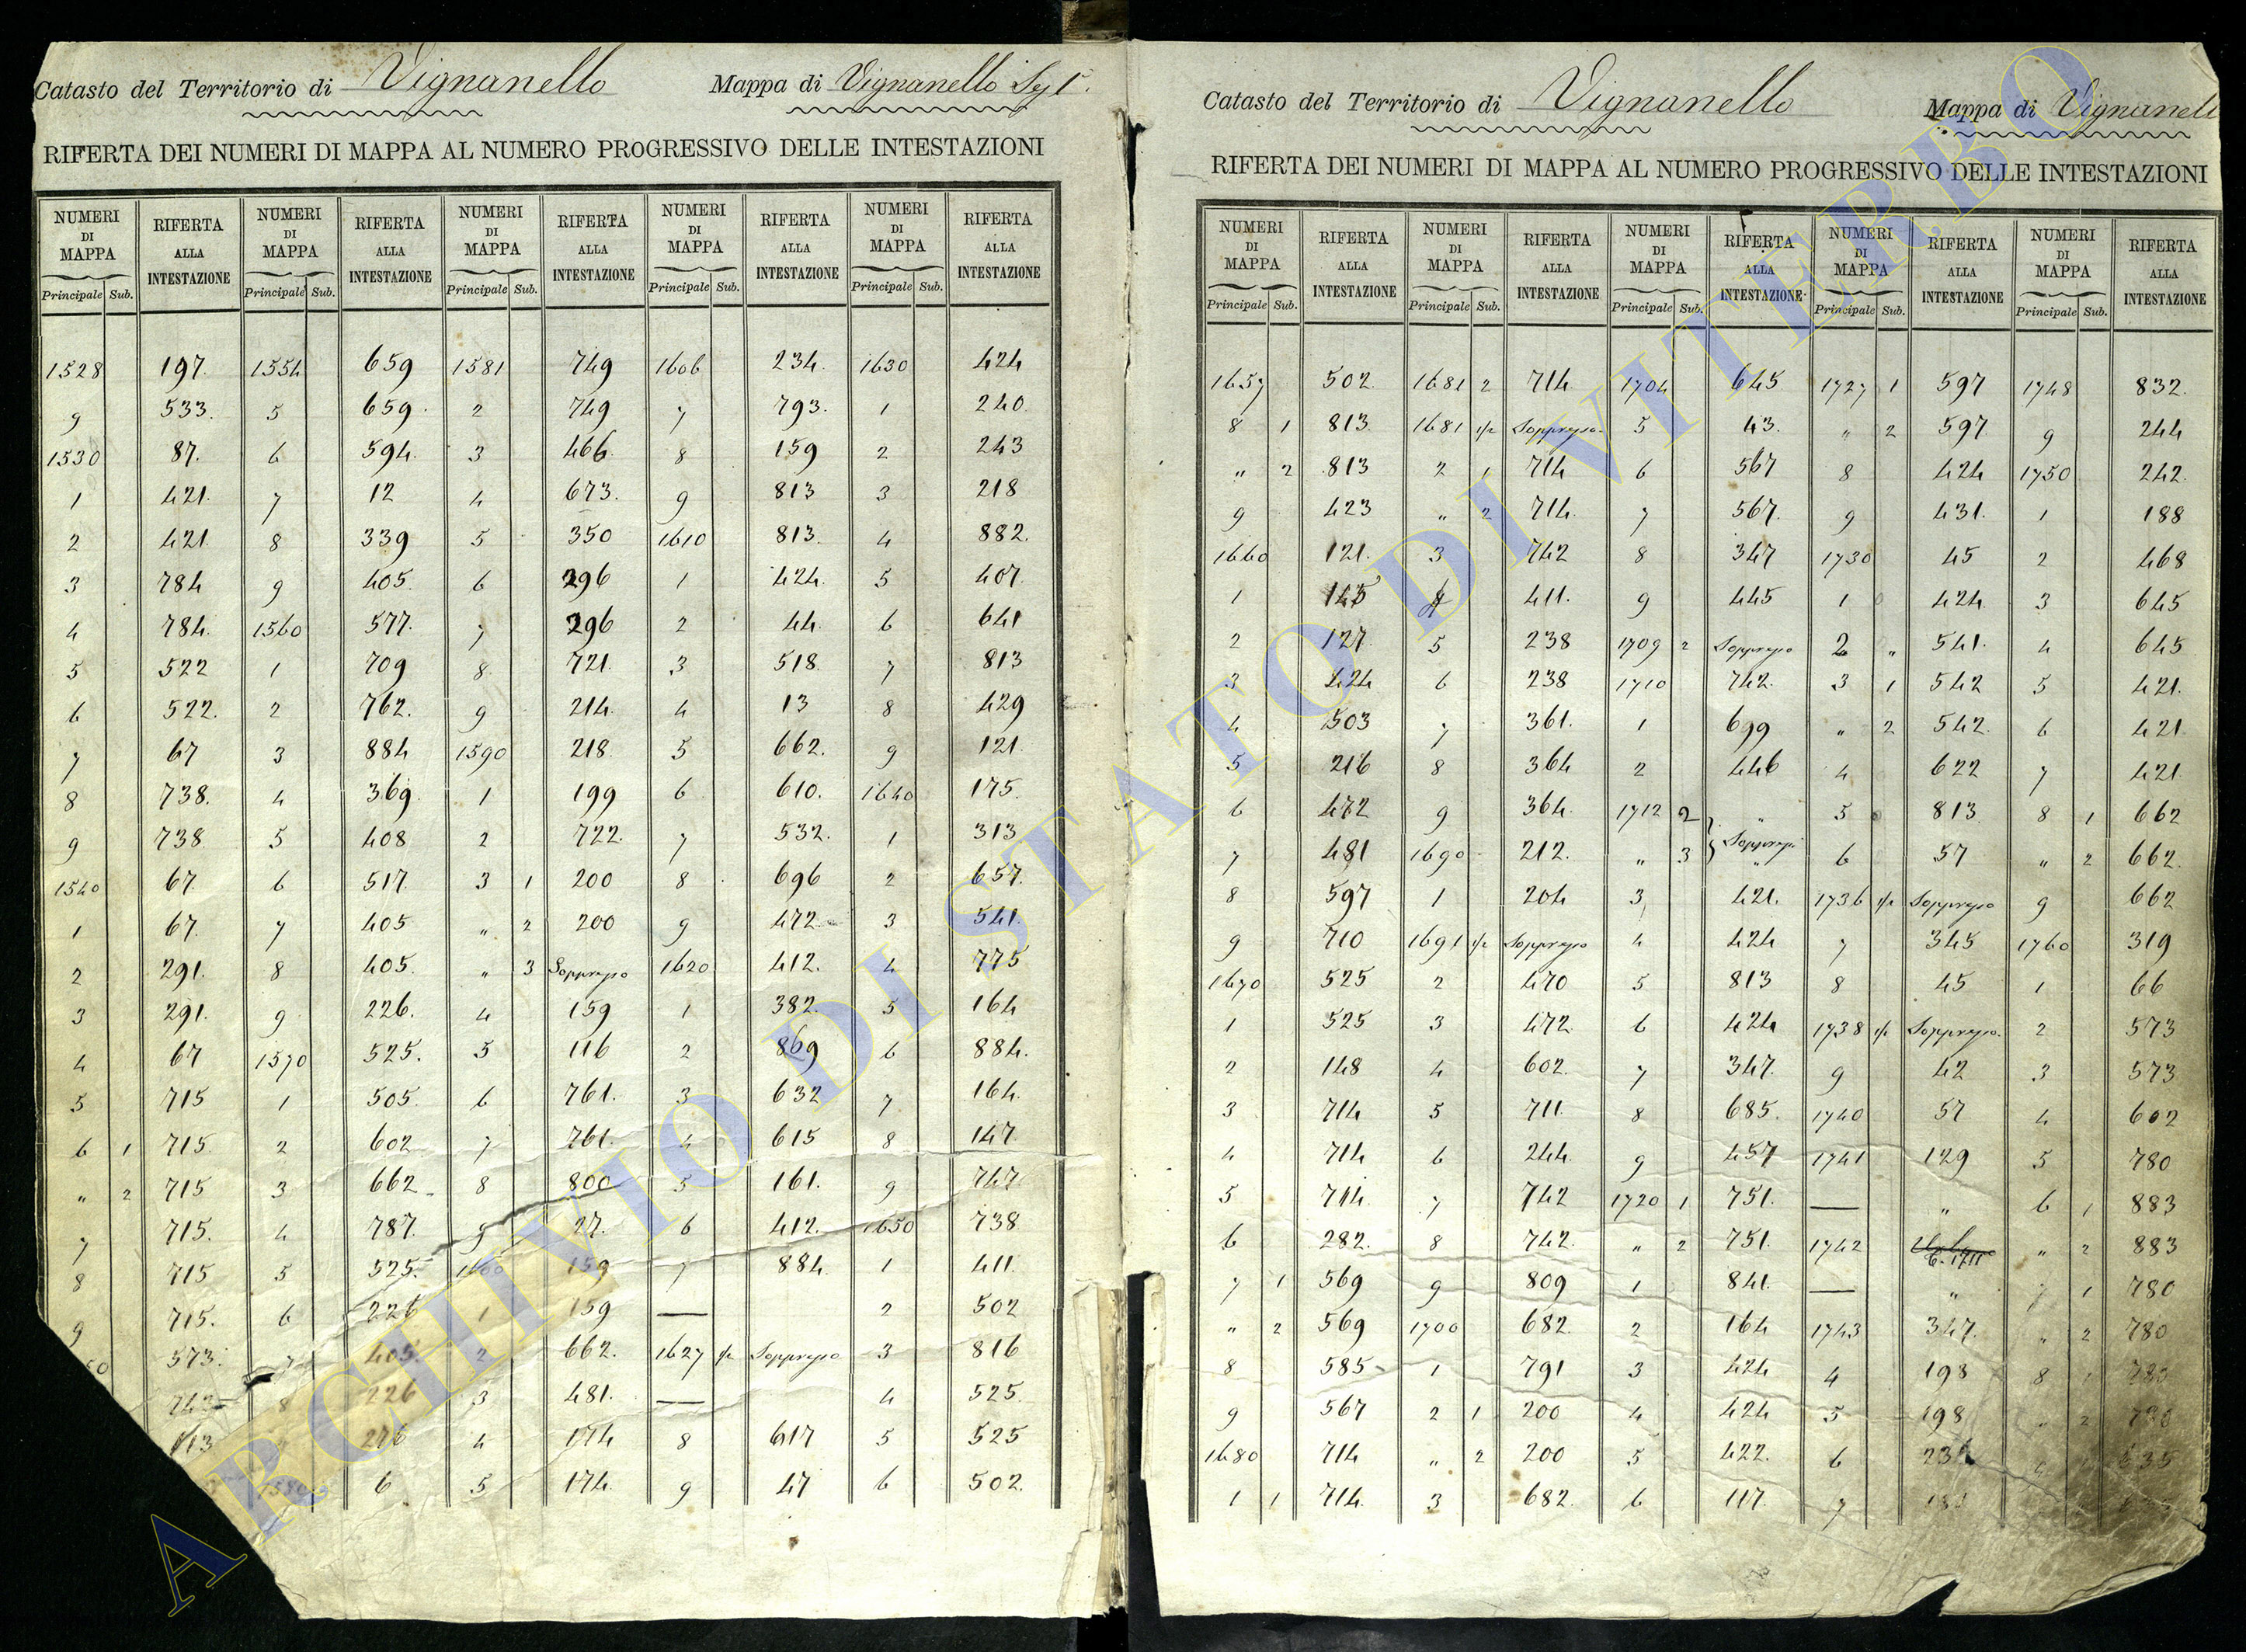 Catasto del Territorio di Vignanello Mappa di Vignanello
RIFERTA DEI NUMERI DI MAPPA AL NUMERO PROGRESSIVO DELLE INTESTAZIONI
NUMERI DI MAPPA RIFERTA ALLA INTESTAZIONE NUMERI DI MAPPA RIFERTA ALLA INTESTAZIONE NUMERI DI MAPPA RIFERTA ALLA INTESTAZIONE NUMERI DI MAPPA RIFERTA ALLA INTESTAZIONE NUMERI DI MAPPA RIFERTA ALLA INTESTAZIONE
Principale Sub. Principale Sub. Principale Sub. Principale Sub. Principale Sub.
1528 197. 1554 659 1581 749 1606 234. 1630 424
9 533. 5 659. 2 749 7 793. 1 240.
1530 87. 6 594. 3 466. 8 159 2 243
1 421. 7 12 4 673. 9 813 3 218
2 421. 8 339 5 350 1610 813. 4 882.
3 784 9 405. 6 296 1 424. 5 407.
4 784. 1560 577. 7 296 2 44. 6 641
5 522 1 709 8 721. 3 518. 7 813
6 522. 2 762. 9 214. 4 13 8 429
7 67 3 884 1590 218. 5 662. 9 121.
8 738. 4 369. 1 199 6 610. 1640 175.
9 738 5 408 2 722. 7 532. 1 313
1540 67. 6 517. 3 1 200 8 696 2 657.
1 67. 7 405 " 2 200 9 472 3 541.
2 291. 8 405. " 3 Soppresso 1620 412. 4 775
3 291. 9 226. 4 159 1 382. 5 164
4 67 1570 525. 5 116 2 869 6 884.
5 715 1 505. 6 761. 3 632 7 164.
6 1 715. 2 602 7 761. 4 615 8 147.
" 2 715 3 662 8 800 5 161. 9 747
7 715. 4 787. 9 27. 6 412. 1650 738
8 715 5 525. 1600 159 7 884. 1 411.
9 715. 6 226 1 159 — 2 502
573. 7 405. 2 662. 1627 Soppresso 3 816
8 226 3 481. — 4 525.
113 276 4 174 8 617 5 525
1580 6 5 174. 9 47 6 502.
Catasto del Territorio di Vignanello Mappa di Vignanell
RIFERTA DEI NUMERI DI MAPPA AL NUMERO PROGRESSIVO DELLE INTESTAZIONI
NUMERI DI MAPPA RIFERTA ALLA INTESTAZIONE NUMERI DI MAPPA RIFERTA ALLA INTESTAZIONE NUMERI DI MAPPA RIFERTA ALLA INTESTAZIONE NUMERI DI MAPPA RIFERTA ALLA INTESTAZIONE NUMERI DI MAPPA RIFERTA ALLA INTESTAZIONE
Principale Sub. Principale Sub. Principale Sub. Principale Sub. Principale Sub.
1657 502. 1681 2 714. 1704 645 1727 1 597 1748 832.
8 1 813. 1681 Soppresso. 5 43. " 2 597 9 244
" 2 813 2 1 714 6 567 8 424 1750 242.
9 423 " 2 714. 7 567. 9 431. 1 188
1660 121. 3 742 8 347 1730 45 2 468
1 145 4 411. 9 445 1 424. 3 645
2 127. 5 238 1709 2 Soppresso 2 " 541. 4 645
3 424 6 238 1710 742. 3 1 542 5 421.
4 503 7 361. 1 699 " 2 542. 6 421
5 216 8 364 2 446 4 622 7 421
6 472 9 364. 1712 2 " 5 813 8 1 662
7 481 1690 212. " 3 Soppressi " 6 57 " 2 662.
8 597 1 204 3 421. 1736 Soppresso 9 662
9 710 1691 Soppresso 4 424 7 345 1760 319
1670 525 2 470 5 813 8 45 1 66
1 525 3 472 6 424 1738 Soppresso. 2 573
2 148 4 602. 7 347. 9 42 3 573
3 714 5 711. 8 685. 1740 57 4 602
4 714 6 244. 9 457 1741 129 5 780
5 714. 7 742 1720 1 751. — " 6 1 883
6 282. 8 742. " 2 751. 1742 " 2 883
7 1 569 9 809 1 841. — " 7 1 780
" 2 569 1700 682. 2 164 1743 347. " 2 780
8 585 1 791 3 424 4 198 8 1 780
9 567 2 1 200 4 424 5 198 " 2 780
1680 714 " 2 200 5 422. 6
1 1 714. 3 682. 6 117. 7
ARCHIVIO DI STATO DI VITERBO